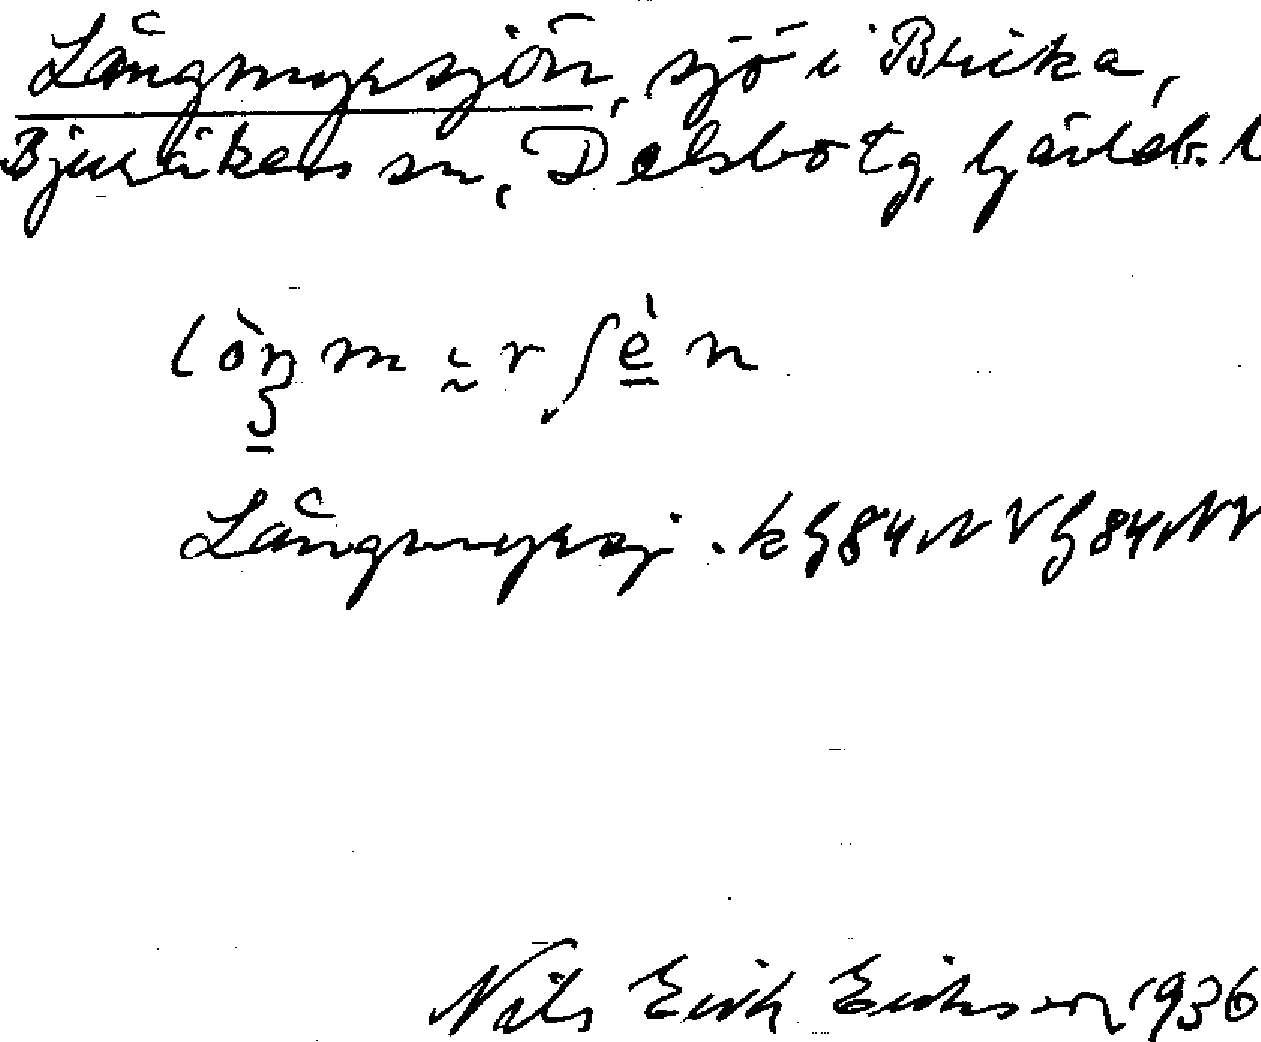 Långmyrsjön, sjö i Bricka,
Bjuråkers sn, Delsbo tg, Gävleb. l
lòŋmyrʃèn
Långmyrsj. k G84N Vg84NV
Nils Erik Eriksson 1936